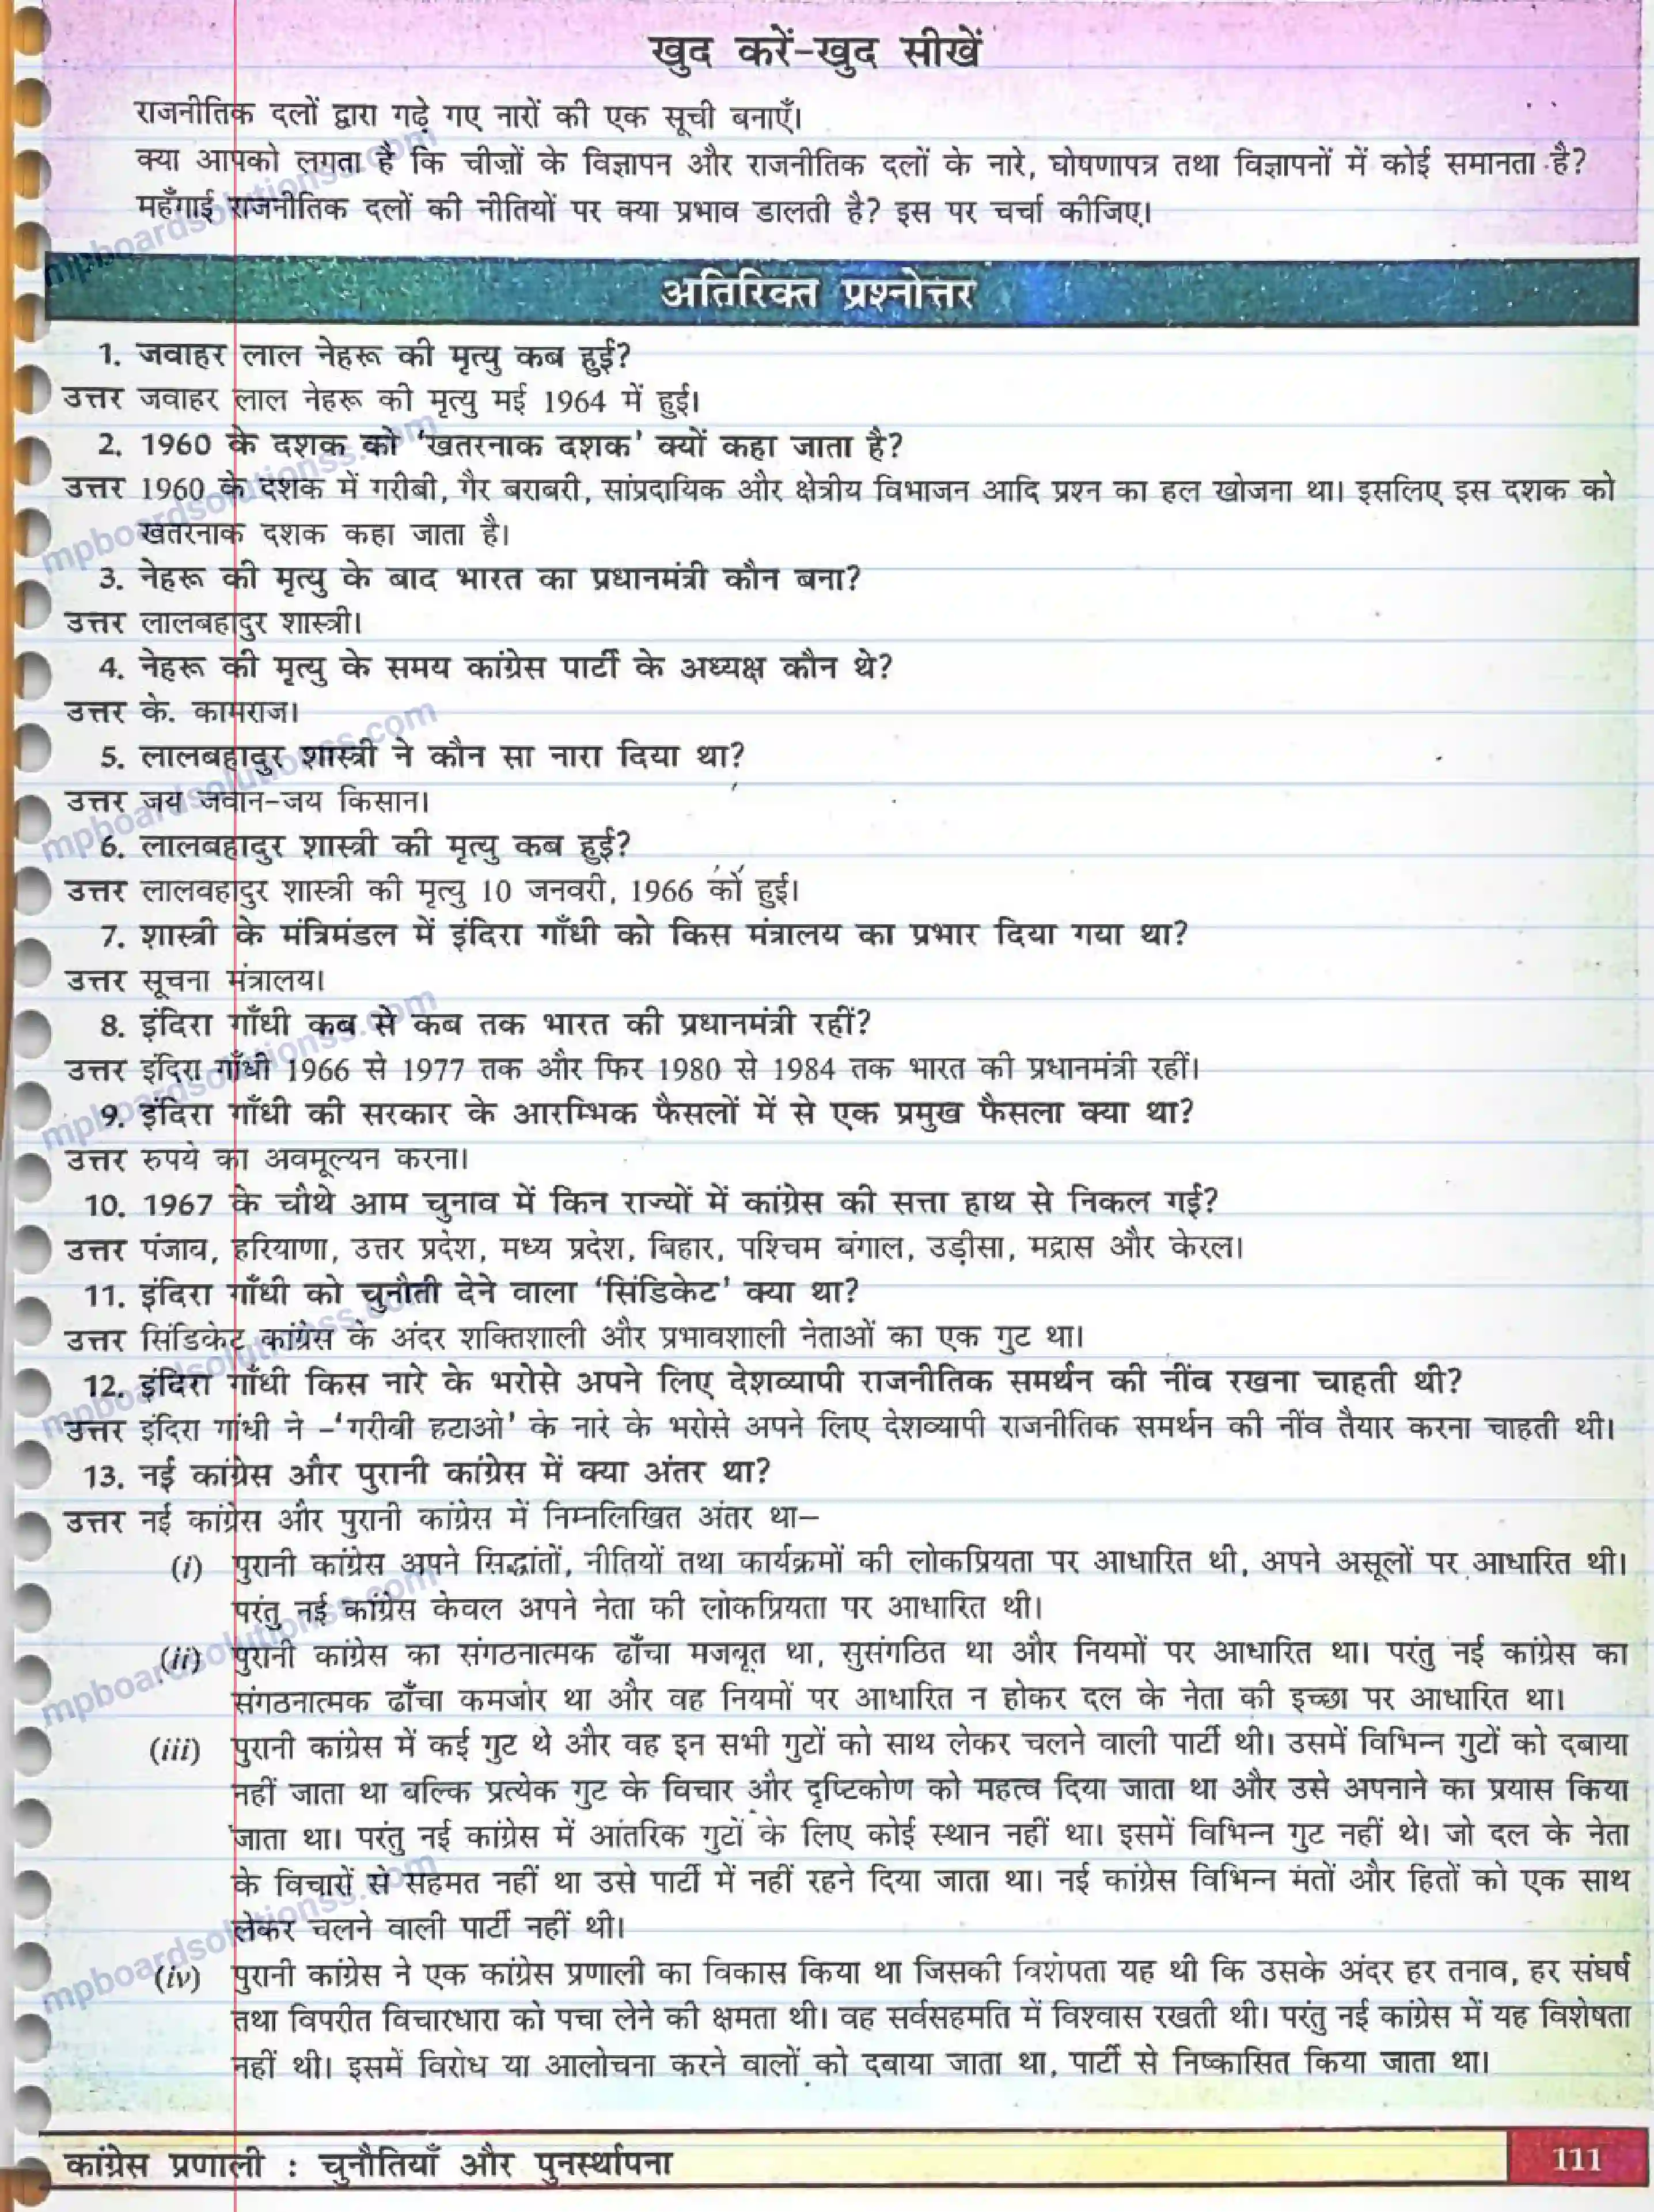 खुद करें-खुद सीखें
राजनीतिक दलों द्वारा गढ़े गए नारों की एक सूची बनाएँ।
क्या आपको लगता है कि चीज़ों के विज्ञापन और राजनीतिक दलों के नारे, घोषणापत्र तथा विज्ञापनों में कोई समानता है?
महँगाई राजनीतिक दलों की नीतियों पर क्या प्रभाव डालती है? इस पर चर्चा कीजिए।
अतिरिक्त प्रश्नोत्तर
1. जवाहर लाल नेहरू की मृत्यु कब हुई?
उत्तर जवाहर लाल नेहरू की मृत्यु मई 1964 में हुई।
2. 1960 के दशक को ‘खतरनाक दशक’ क्यों कहा जाता है?
उत्तर 1960 के दशक में गरीबी, गैर बराबरी, सांप्रदायिक और क्षेत्रीय विभाजन आदि प्रश्न का हल खोजना था। इसलिए इस दशक को
खतरनाक दशक कहा जाता है।
3. नेहरू की मृत्यु के बाद भारत का प्रधानमंत्री कौन बना?
उत्तर लालबहादुर शास्त्री।
4. नेहरू की मृत्यु के समय कांग्रेस पार्टी के अध्यक्ष कौन थे?
उत्तर के. कामराज।
5. लालबहादुर शास्त्री ने कौन सा नारा दिया था?
उत्तर जय जवान-जय किसान।
6. लालबहादुर शास्त्री की मृत्यु कब हुई?
उत्तर लालबहादुर शास्त्री की मृत्यु 10 जनवरी, 1966 को हुई।
7. शास्त्री के मंत्रिमंडल में इंदिरा गाँधी को किस मंत्रालय का प्रभार दिया गया था?
उत्तर सूचना मंत्रालय।
8. इंदिरा गाँधी कब से कब तक भारत की प्रधानमंत्री रहीं?
उत्तर इंदिरा गाँधी 1966 से 1977 तक और फिर 1980 से 1984 तक भारत की प्रधानमंत्री रहीं।
9. इंदिरा गाँधी की सरकार के आरम्भिक फैसलों में से एक प्रमुख फैसला क्या था?
उत्तर रुपये का अवमूल्यन करना।
10. 1967 के चौथे आम चुनाव में किन राज्यों में कांग्रेस की सत्ता हाथ से निकल गई?
उत्तर पंजाब, हरियाणा, उत्तर प्रदेश, मध्य प्रदेश, बिहार, पश्चिम बंगाल, उड़ीसा, मद्रास और केरल।
11. इंदिरा गाँधी को चुनौती देने वाला ‘सिंडिकेट’ क्या था?
उत्तर सिंडिकेट कांग्रेस के अंदर शक्तिशाली और प्रभावशाली नेताओं का एक गुट था।
12. इंदिरा गाँधी किस नारे के भरोसे अपने लिए देशव्यापी राजनीतिक समर्थन की नींव रखना चाहती थी?
उत्तर इंदिरा गांधी ने –‘गरीबी हटाओ’ के नारे के भरोसे अपने लिए देशव्यापी राजनीतिक समर्थन की नींव तैयार करना चाहती थी।
13. नई कांग्रेस और पुरानी कांग्रेस में क्या अंतर था?
उत्तर नई कांग्रेस और पुरानी कांग्रेस में निम्नलिखित अंतर था–
(i) पुरानी कांग्रेस अपने सिद्धांतों, नीतियों तथा कार्यक्रमों की लोकप्रियता पर आधारित थी, अपने असूलों पर आधारित थी।
परंतु नई कांग्रेस केवल अपने नेता की लोकप्रियता पर आधारित थी।
(ii) पुरानी कांग्रेस का संगठनात्मक ढाँचा मजबूत था, सुसंगठित था और नियमों पर आधारित था। परंतु नई कांग्रेस का
संगठनात्मक ढाँचा कमजोर था और वह नियमों पर आधारित न होकर दल के नेता की इच्छा पर आधारित था।
(iii) पुरानी कांग्रेस में कई गुट थे और वह इन सभी गुटों को साथ लेकर चलने वाली पार्टी थी। उसमें विभिन्न गुटों को दबाया
नहीं जाता था बल्कि प्रत्येक गुट के विचार और दृष्टिकोण को महत्व दिया जाता था और उसे अपनाने का प्रयास किया
जाता था। परंतु नई कांग्रेस में आंतरिक गुटों के लिए कोई स्थान नहीं था। इसमें विभिन्न गुट नहीं थे। जो दल के नेता
के विचारों से सहमत नहीं था उसे पार्टी में नहीं रहने दिया जाता था। नई कांग्रेस विभिन्न मतों और हितों को एक साथ
लेकर चलने वाली पार्टी नहीं थी।
(iv) पुरानी कांग्रेस ने एक कांग्रेस प्रणाली का विकास किया था जिसकी विशेषता यह थी कि उसके अंदर हर तनाव, हर संघर्ष
तथा विपरीत विचारधारा को पचा लेने की क्षमता थी। वह सर्वसहमति में विश्वास रखती थी। परंतु नई कांग्रेस में यह विशेषता
नहीं थी। इसमें विरोध या आलोचना करने वालों को दबाया जाता था, पार्टी से निष्कासित किया जाता था।
कांग्रेस प्रणाली : चुनौतियाँ और पुनर्स्थापना
111
mpboardsolutionss.com
mpboardsolutionss.com
mpboardsolutionss.com
mpboardsolutionss.com
mpboardsolutionss.com
mpboardsolutionss.com
mpboardsolutionss.com